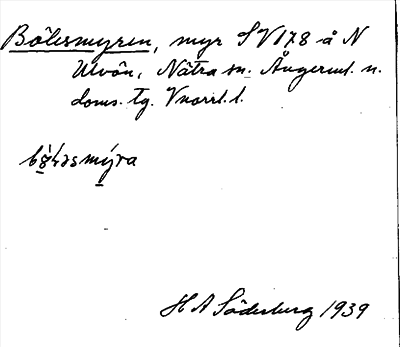 Bölesmyren, myr SV178 å N
Ulvön, Nätra sn. Ångerml. n.
doms. tg. Vnorrl. l.
H A Söderberg 1939